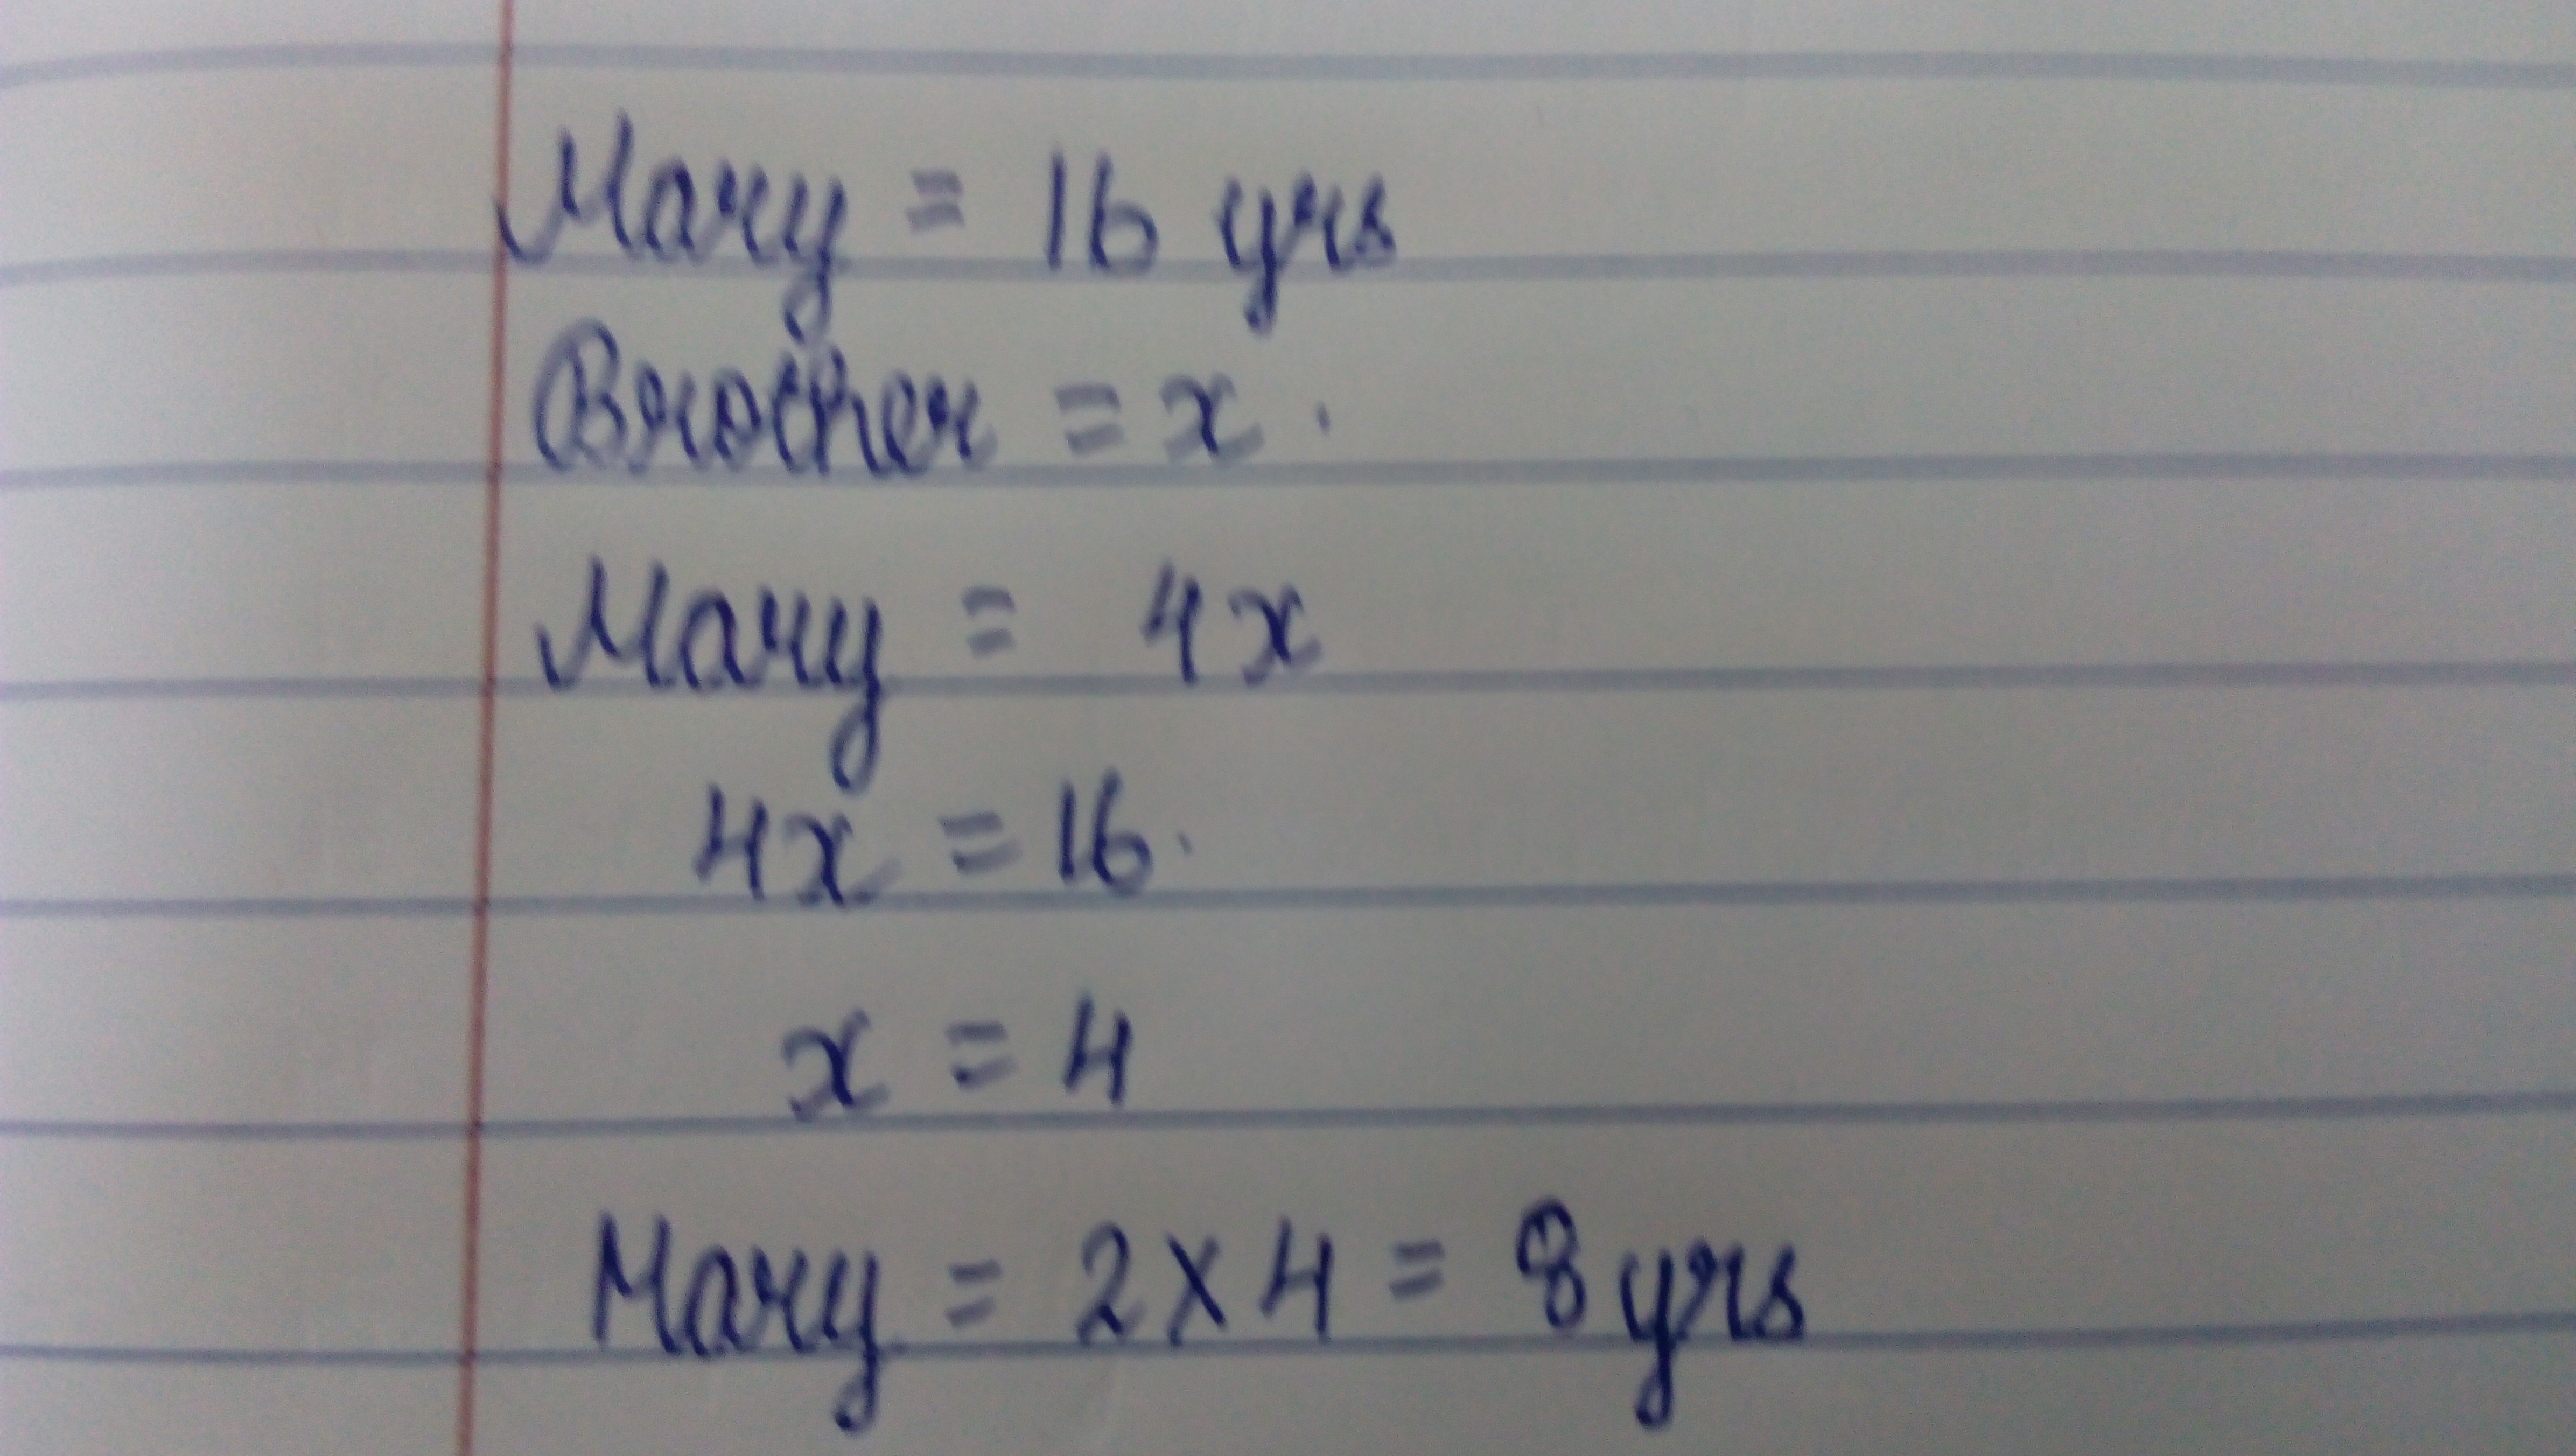 Mary = 16 yrs
Brother = x.
Mary = 4x
4x = 16.
x = 4
Mary = 2 x 4 = 8 yrs